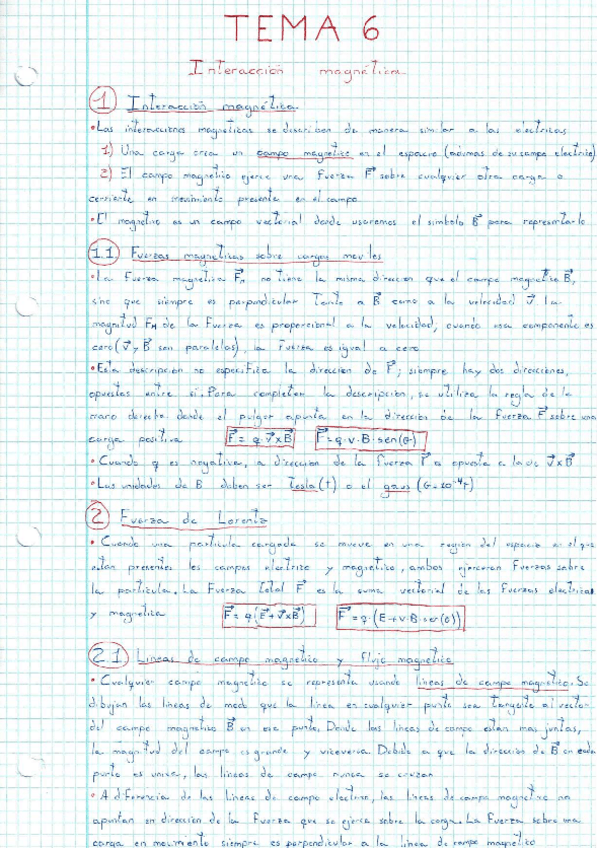 TEMA 6
Interacción magnética
1 Interacción magnética.
• Las interacciones magnéticas se describen de manera similar a las eléctricas
1) Una carga crea un campo magnético en el espacio (además de su campo eléctrico)
2) El campo magnético ejerce una Fuerza F⃗ sobre cualquier otra carga o
corriente en movimiento presente en el campo.
• El magnético es un campo vectorial donde usaremos el símbolo B⃗ para representarlo
1.1 Fuerzas magnéticas sobre cargas moviles
• La Fuerza magnética F⃗ₘ no tiene la misma dirección que el campo magnético B⃗,
sino que siempre es perpendicular tanto a B⃗ como a la velocidad v⃗ La
magnitud Fₘ de la Fuerza es proporcional a la velocidad, cuando esa componente es
cero (v⃗ y B⃗ son paralelos), la Fuerza es igual a cero
• Esta descripción no especifica la dirección de F⃗; siempre hay dos direcciones,
opuestas entre si. Para completar la descripción, se utiliza la regla de la
mano derecha donde el pulgar apunta en la dirección de la Fuerza F⃗ sobre una
carga positiva F⃗ = q·v⃗xB⃗ F⃗ = q·v·B·sen(θ)
• Cuando q es negativa, la dirección de la fuerza F⃗ es opuesta a la de v⃗xB⃗
• Las unidades de B deben ser Tesla (T) o el gaus (G=10⁻⁴T)
2 Fuerza de Lorentz
• Cuando una partícula cargada se mueve en una región del espacio en el que
están presentes los campos eléctrico y magnético, ambos ejercerán Fuerzas sobre
la partícula. La Fuerza total F⃗ es la suma vectorial de las Fuerzas eléctricas
y magnética F⃗ = q(E⃗+v⃗xB⃗) F⃗ = q·(E+v·B·sen(θ))
2.1 Lineas de campo magnético y flujo magnético
• Cualquier campo magnético se representa usando líneas de campo magnético. Se
dibujan las líneas de modo que la línea en cualquier punto sea tangente al vector
del campo magnético B⃗ en ese punto. Donde las líneas de campo están mas juntas,
la magnitud del campo es grande y viceversa. Debido a que la dirección de B⃗ en cada
punto es unica, las líneas de campo nunca se cruzan
• A diferencia de las Lineas de campo eléctrico, las líneas de campo magnético no
apuntan en dirección de la Fuerza que se ejerce sobre la carga. La Fuerza sobre una
carga en movimiento siempre es perpendicular a la línea de campo magnético